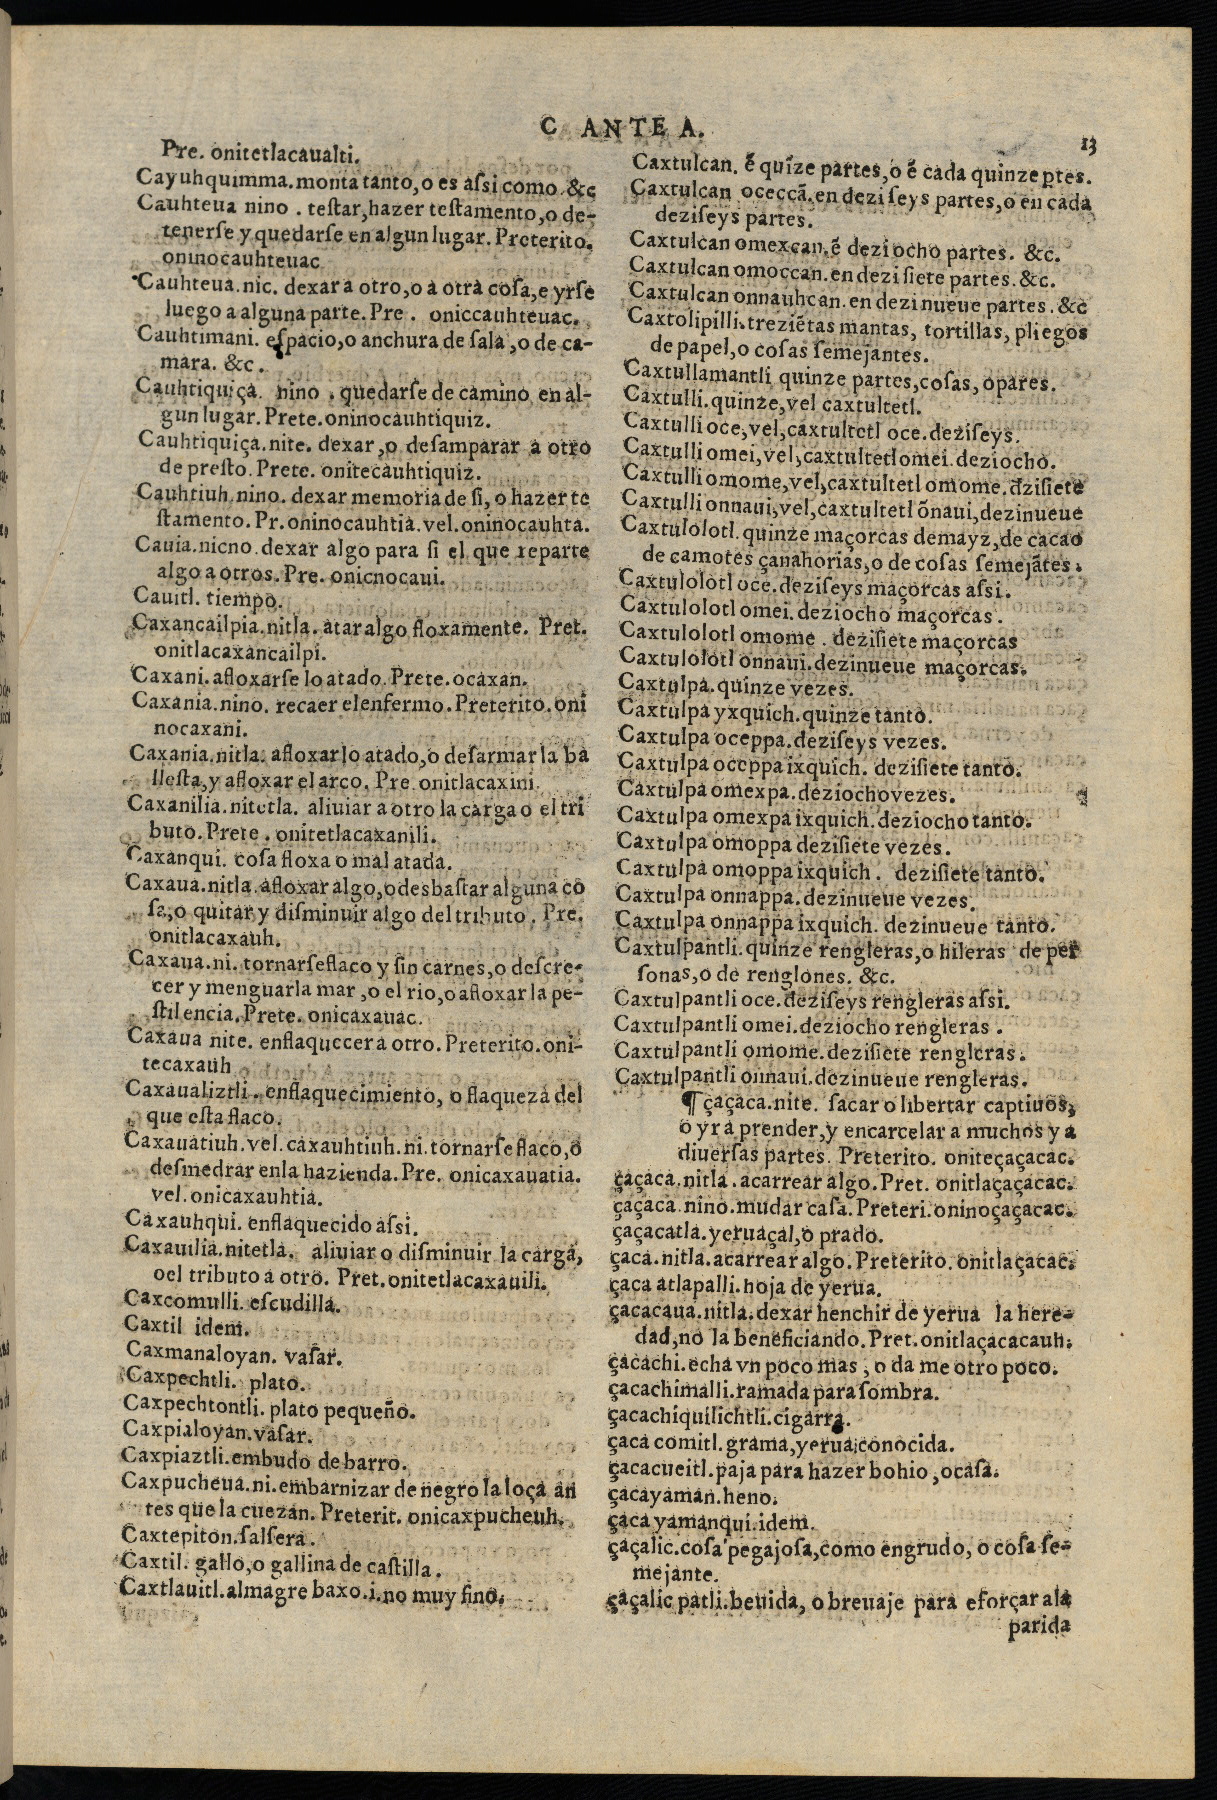 C ANTE A.
13
Pre. onitetlacaualti.
Cayuhquimma.monta tanto,o es aſsi como &c
Cauhteua nino . teſtar,hazer teſtamento,o de-
tenerſe y quedarſe en algun lugar. Preterito.
oninocauhteuac
Cauhteua.nic. dexar a otro,o a otra coſa,e yrſe
luego a alguna parte. Pre . oniccauhteuac.
Cauhtimani. eſpacio,o anchura de ſala ,o de ca-
mara. &c.
Cauhtiquiça. nino . quedarſe de camino en al-
gun lugar. Prete.oninocauhtiquiz.
Cauhtiquiça.nite. dexar ,o deſamparar a otro
de preſto. Prete. onitecauhtiquiz.
Cauhtiuh.nino. dexar memoria de ſi, o hazer te
ſtamento. Pr. oninocauhtia. vel.oninocauhta.
Cauia.nicno.dexar algo para ſi el que reparte
algo a otros. Pre. onicnocaui.
Cauitl. tiempo.
Caxancailpia.nitla. atar algo floxamente. Pret.
onitlacaxancailpi.
Caxani. afloxarſe lo atado. Prete. ocaxan.
Caxania.nino. recaer el enfermo. Preterito.oni
nocaxani.
Caxania.nitla. afloxar lo atado,o deſarmar la ba
lleſta,y afloxar el arco. Pre onitlacaxini.
Caxanilia.nitetla. aliuiar a otro la carga o el tri
buto. Prete . onitetlacaxanili.
Caxanqui. coſa floxa o mal atada.
Caxaua.nitla.afloxar algo,o desbaſtar alguna co
ſa,o quitar y diſminuir algo del tributo . Pre.
onitlacaxauh.
Caxaua.ni. tornarſe flaco y ſin carnes,o deſcre-
cer y menguar la mar ,o el rio,o afloxar la pe-
ſtilencia. Prete. onicaxauac.
Caxaua nite. enflaquecer a otro. Preterito.oni-
tecaxauh
Caxaualiztli . enflaquecimiento, o flaqueza del
que eſta flaco.
Caxauatiuh.vel.caxauhtiuh.ni.tornarſe flaco,o
deſmedrar enla hazienda. Pre. onicaxauatia.
vel.onicaxauhtia.
Caxauhqui. enflaquecido aſsi.
Caxauilia.nitetla. aliuiar o diſminuir la carga,
oel tributo a otro. Pret.onitetlacaxauili.
Caxcomulli. eſcudilla.
Caxtil idem.
Caxmanaloyan. vaſar.
Caxpechtli. plato.
Caxpechtontli. plato pequeño.
Caxpialoyan.vaſar.
Caxpiaztli.embudo de barro.
Caxpucheua.ni.embarnizar de negro la loça an
tes que la cuezan. Preterit. onicaxpucheuh.
Caxtepiton.ſalſera.
Caxtil. gallo,o gallina de caſtilla.
Caxtlauitl.almagre baxo.i.no muy fino.
Caxtulcan. ẽ quĩze partes,o ẽ cada quinze ptes.
Caxtulcan oceccã.en dezi ſeys partes,o en cada
deziſeys partes.
Caxtulcan omexcan.ẽ deziocho partes. &c.
Caxtulcan omoccan.en dezi ſiete partes. &c.
Caxtulcan onnauhcan. en dezinueue partes. &c
Caxtolipilli.treziẽtas mantas, tortillas, pliegos
de papel,o coſas ſemejantes.
Caxtullamantli quinze partes,coſas, opares.
Caxtulli.quinze,vel caxtultetl.
Caxtulli oce,vel,caxtultetl oce.deziſeys.
Caxtulli omei,vel,caxtultetl omei.deziocho.
Caxtulli omome,vel,caxtultetl omome.dziſiete
Caxtulli onnaui,vel,caxtultetl õnaui,dezinueue
Caxtulolotl.quinze maçorcas demayz,de cacao
de camotes çanahorias,o de coſas ſemejãtes.
Caxtulolotl oce.deziſeys maçorcas aſsi.
Caxtulolotl omei.deziocho maçorcas.
Caxtulolotl omome . deziſiete maçorcas
Caxtulolotl onnaui.dezinueue maçorcas.
Caxtulpa.quinze vezes.
Caxtulpa yxquich.quinze tanto.
Caxtulpa oceppa.deziſeys vezes.
Caxtulpa oceppa ixquich. deziſiete tanto.
Caxtulpa omexpa.deziocho vezes.
Caxtulpa omexpa ixquich.deziocho tanto.
Caxtulpa omoppa deziſiete vezes.
Caxtulpa omoppa ixquich. deziſiete tanto.
Caxtulpa onnappa.dezinueue vezes.
Caxtulpa onnappa ixquich. dezinueue tanto.
Caxtulpantli.quinze rengleras,o hileras de per
ſonas,o de renglones. &c.
Caxtulpantli oce.deziſeys rengleras aſsi.
Caxtulpantli omei.deziocho rengleras .
Caxtulpantli omome.deziſiete rengleras.
Caxtulpantli onnaui.dezinueue rengleras.
¶ çaçaca.nite. ſacar o libertar captiuos,
o yr a prender,y encarcelar a muchos y a
diuerſas partes. Preterito. oniteçaçacac.
çaçaca.nitla.acarrear algo. Pret. onitlaçaçacac.
çaçaca.nino.mudar caſa. Preteri.oninoçaçacac.
çaçacatla.yeruaçal,o prado.
çaca.nitla.acarrear algo. Preterito. onitlaçacac.
çaca atlapalli.hoja de yerua.
çacacaua.nitla.dexar henchir de yerua la here-
dad,no la beneficiando. Pret.onitlaçacacauh.
çacachi.echa vn poco mas , o da me otro poco.
çacachimalli.ramada para ſombra.
çacachiquilichtli.cigarra.
çaca comitl.grama,yerua conocida.
çacacueitl.paja para hazer bohio ,ocaſa.
çacayaman.heno.
çaca yamanqui.idem.
çaçalic.coſa pegajoſa,como engrudo, o coſa ſe-
mejante.
çaçalic patli.beuida, o breuaje para eſorçar ala
parida